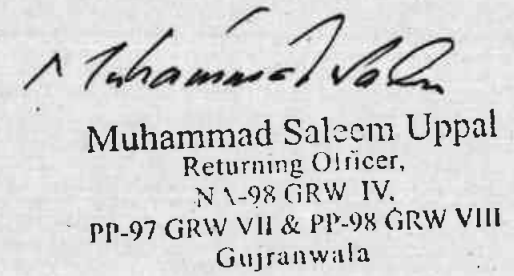 Muhammad Salee
Muhammad Saleem Uppal
Returning Officer,
NA-98 GRW IV.
PP-97 GRW VII & PP-98 GRW VIII
Gujranwala